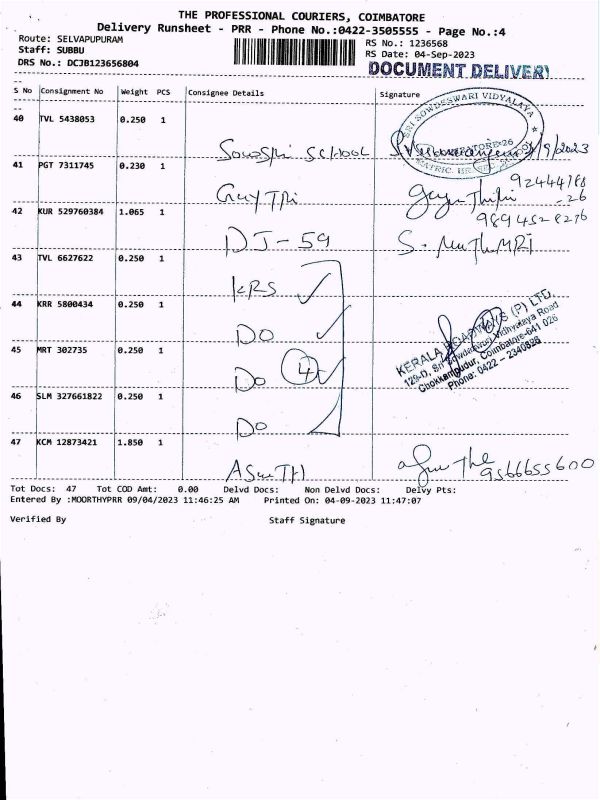 THE PROFESSIONAL COURIERS, COIMBATORE
Delivery Runsheet - PRR - Phone No.:0422-3505555 - Page No.:4
Route: SELVAPUPURAM
RS No.: 1236568
Staff: SUBBU
RS Date: 04-Sep-2023
DRS No.: DCJB123656804
DOCUMENT DELIVERY
S No Consignment No Weight PCS Consignee Details Signature
40 TVL 5438053 0.250 1
SRI SOWDESWARI VIDYALAYA
COIMBATORE-26
MATRIC. HR. SEC.
School /9/2023
41 PGT 7311745 0.230 1
92444188
-26
GayTri
42 KUR 529760384 1.065 1
9894528276
DJ-59 S. MuThMRI
43 TVL 6627622 0.250 1
KRS
44 KRR 5800434 0.250 1
Do
KERALA ROADWAYS (P) LTD,
129-D, Sri Sowdeswari Vidhyalaya Road
Chokkampudur, Coimbatore-641 026
Phone: 0422 - 2340826
45 MRT 302735 0.250 1
Do 4
46 SLM 327661822 0.250 1
Do
47 KCM 12873421 1.850 1
9566655600
Tot Docs: 47 Tot COD Amt: 0.00 Delvd Docs: Non Delvd Docs: Delvy Pts:
Entered By :MOORTHYPRR 09/04/2023 11:46:25 AM Printed On: 04-09-2023 11:47:07
Verified By Staff Signature